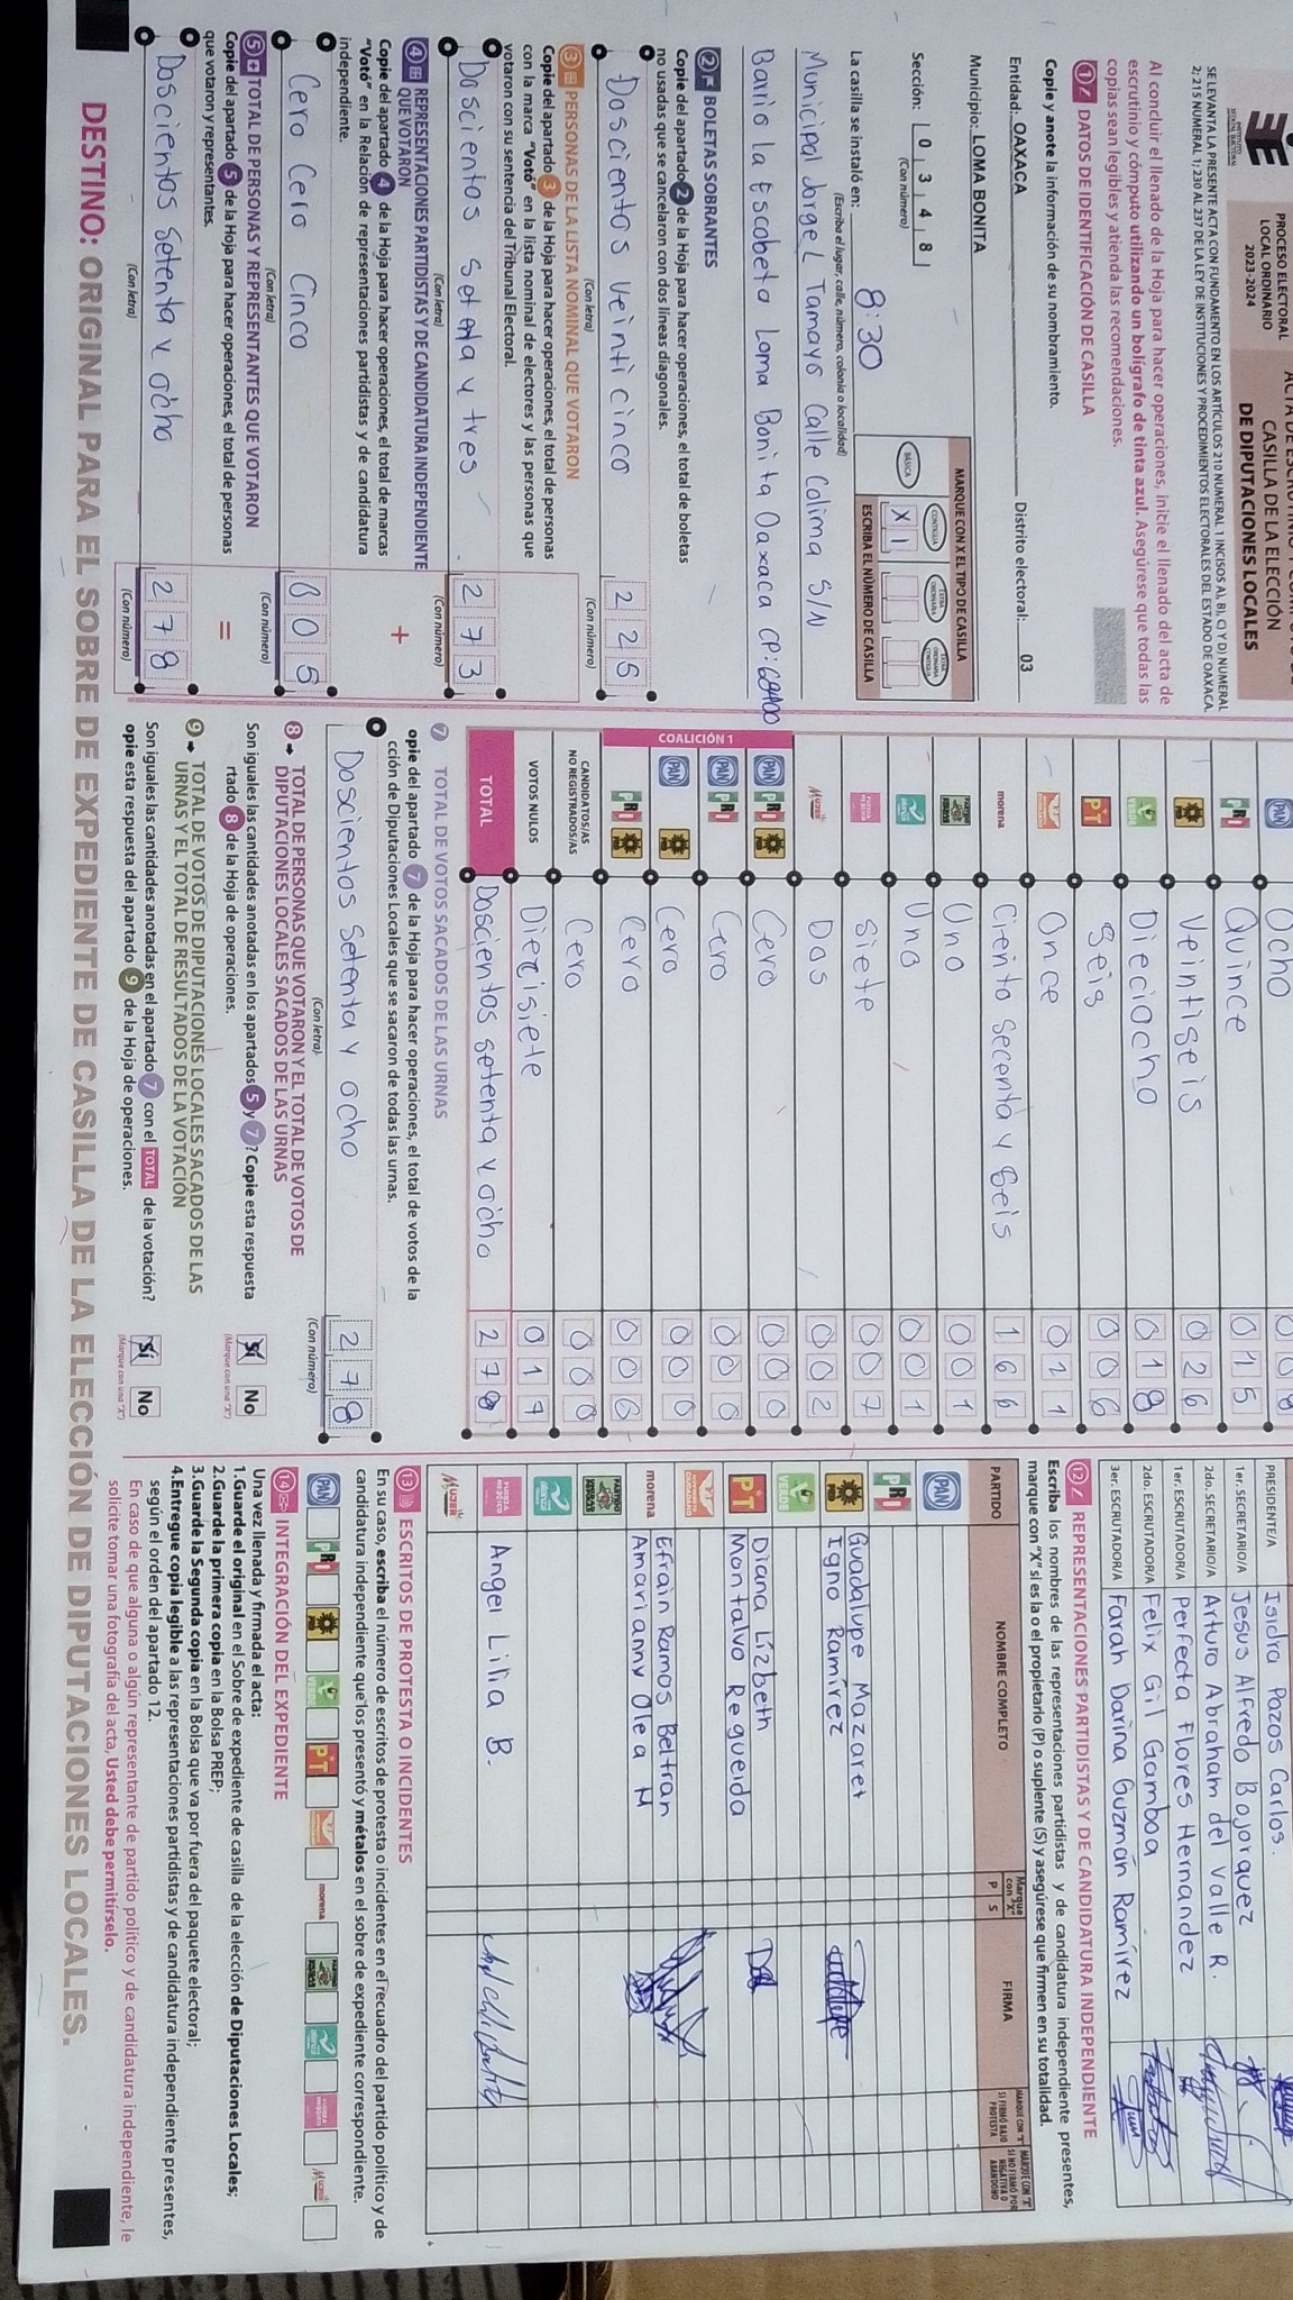 PROCESO ELECTORAL
LOCAL ORDINARIO
2023-2024
CASILLA DE LA ELECCIÓN
DE DIPUTACIONES LOCALES
SE LEVANTA LA PRESENTE ACTA CON FUNDAMENTO EN LOS ARTÍCULOS 210 NUMERAL 1 INCISOS A), B), C) Y D) NUMERAL
2; 215 NUMERAL 1; 230 AL 237 DE LA LEY DE INSTITUCIONES Y PROCEDIMIENTOS ELECTORALES DEL ESTADO DE OAXACA.
Al concluir el llenado de la Hoja para hacer operaciones, inicie el llenado del acta de
escrutinio y cómputo utilizando un bolígrafo de tinta azul. Asegúrese que todas las
copias sean legibles y atienda las recomendaciones.
1 DATOS DE IDENTIFICACIÓN DE CASILLA
Copie y anote la información de su nombramiento.
Entidad: OAXACA Distrito electoral: 03
Municipio: LOMA BONITA
Sección: 0 3 4 8
(Con número)
MARQUE CON X EL TIPO DE CASILLA
BÁSICA CONTIGUA
X 1
ESCRIBA EL NÚMERO DE CASILLA
8:30
La casilla se instaló en:
(Escriba el lugar, calle, número, colonia o localidad)
Municipal Jorge L Tamayo Calle Colima S/N
Barrio la Escobeta Loma Bonita Oaxaca CP: 68400
2 BOLETAS SOBRANTES
Copie del apartado 2 de la Hoja para hacer operaciones, el total de boletas
no usadas que se cancelaron con dos líneas diagonales.
Doscientos Veinti cinco 2 2 5
(Con letra) (Con número)
3 PERSONAS DE LA LISTA NOMINAL QUE VOTARON
Copie del apartado 3 de la Hoja para hacer operaciones, el total de personas
con la marca "Votó" en la lista nominal de electores y las personas que
votaron con su sentencia del Tribunal Electoral.
Doscientos Setenta y tres 2 7 3
(Con letra) (Con número)
4 REPRESENTACIONES PARTIDISTAS Y DE CANDIDATURA INDEPENDIENTE
QUE VOTARON
Copie del apartado 4 de la Hoja para hacer operaciones, el total de marcas
"Votó" en la Relación de representaciones partidistas y de candidatura
independiente.
+
Cero Cero Cinco 0 0 5
(Con letra) (Con número)
5 TOTAL DE PERSONAS Y REPRESENTANTES QUE VOTARON
Copie del apartado 5 de la Hoja para hacer operaciones, el total de personas
que votaron y representantes.
=
Doscientos Setenta y ocho 2 7 8
(Con letra) (Con número)
PAN Ocho 0 0 8
PRI Quince 0 1 5
PRD Veintiseis 0 2 6
VERDE Dieciocho 0 1 8
PT Seis 0 0 6
Once 0 1 1
morena Ciento Secenta y Seis 1 6 6
Uno 0 0 1
Uno 0 0 1
Siete 0 0 7
MUJER Dos 0 0 2
COALICIÓN 1
PAN PRI PRD Cero 0 0 0
PAN PRI Cero 0 0 0
PAN PRD Cero 0 0 0
PRI PRD Cero 0 0 0
CANDIDATOS/AS
NO REGISTRADOS/AS Cero 0 0 0
VOTOS NULOS Diecisiete 0 1 7
TOTAL Doscientos Setenta y ocho 2 7 8
7 TOTAL DE VOTOS SACADOS DE LAS URNAS
opie del apartado 7 de la Hoja para hacer operaciones, el total de votos de la
cción de Diputaciones Locales que se sacaron de todas las urnas.
Doscientos Setenta y ocho 2 7 8
(Con letra) (Con número)
8 TOTAL DE PERSONAS QUE VOTARON Y EL TOTAL DE VOTOS DE
DIPUTACIONES LOCALES SACADOS DE LAS URNAS
Son iguales las cantidades anotadas en los apartados 5 y 7? Copie esta respuesta
rtado 8 de la Hoja de operaciones.
Sí No
(Marque con una "X")
9 TOTAL DE VOTOS DE DIPUTACIONES LOCALES SACADOS DE LAS
URNAS Y EL TOTAL DE RESULTADOS DE LA VOTACIÓN
Son iguales las cantidades anotadas en el apartado 7 con el TOTAL de la votación?
opie esta respuesta del apartado 9 de la Hoja de operaciones.
Sí No
(Marque con una "X")
PRESIDENTE/A Isidra Pozos Carlos.
1er. SECRETARIO/A Jesus Alfredo Bojorquez
2do. SECRETARIO/A Arturo Abraham del Valle R.
1er. ESCRUTADOR/A Perfecta Flores Hernandez
2do. ESCRUTADOR/A Felix Gil Gamboa
3er. ESCRUTADOR/A Farah Darina Guzmán Ramírez
12 REPRESENTACIONES PARTIDISTAS Y DE CANDIDATURA INDEPENDIENTE
Escriba los nombres de las representaciones partidistas y de candidatura independiente presentes,
marque con "X" si es la o el propietario (P) o suplente (S) y asegúrese que firmen en su totalidad.
PARTIDO NOMBRE COMPLETO Marque con "X" P S FIRMA MARQUE CON "X" SI FIRMÓ BAJO PROTESTA MARQUE CON "X" SI NO FIRMÓ POR NEGATIVA O ABANDONO
PAN
PRI
PRD Guadalupe Mazaret
Igno Ramírez
VERDE
PT Diana Lizbeth
Montalvo Regueida
morena Efrain Ramos Beltran
Amarianny Olea M
Angel Lilia B.
MUJER
13 ESCRITOS DE PROTESTA O INCIDENTES
En su caso, escriba el número de escritos de protesta o incidentes en el recuadro del partido político y de
candidatura independiente que los presentó y métalos en el sobre de expediente correspondiente.
PAN PRI PRD VERDE PT morena MUJER
14 INTEGRACIÓN DEL EXPEDIENTE
Una vez llenada y firmada el acta:
1.Guarde el original en el Sobre de expediente de casilla de la elección de Diputaciones Locales;
2.Guarde la primera copia en la Bolsa PREP;
3.Guarde la Segunda copia en la Bolsa que va por fuera del paquete electoral;
4.Entregue copia legible a las representaciones partidistas y de candidatura independiente presentes,
según el orden del apartado 12.
En caso de que alguna o algún representante de partido político y de candidatura independiente, le
solicite tomar una fotografía del acta, Usted debe permitírselo.
DESTINO: ORIGINAL PARA EL SOBRE DE EXPEDIENTE DE CASILLA DE LA ELECCIÓN DE DIPUTACIONES LOCALES.